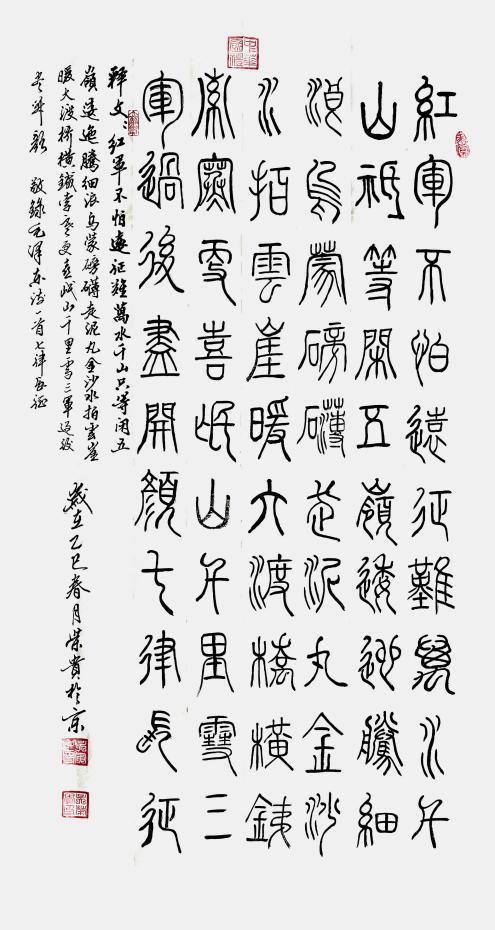 紅軍不怕遠征難萬水千
山祇等閑五嶺逶迤騰細
浪烏蒙磅礴走泥丸金沙
水拍雲崖暖大渡橋橫鐵
索寒更喜岷山千里雪三
軍過後盡開顏七律長征
釋文：紅軍不怕遠征難萬水千山只等闲五
嶺逶迤騰細浪烏蒙磅礴走泥丸金沙水拍雲崖
暖大渡橋橫鐵索寒更喜岷山千里雪三軍過後
尽开颜 敬錄毛澤東詩一首七律長征
歲在乙巳春月榮貴於京